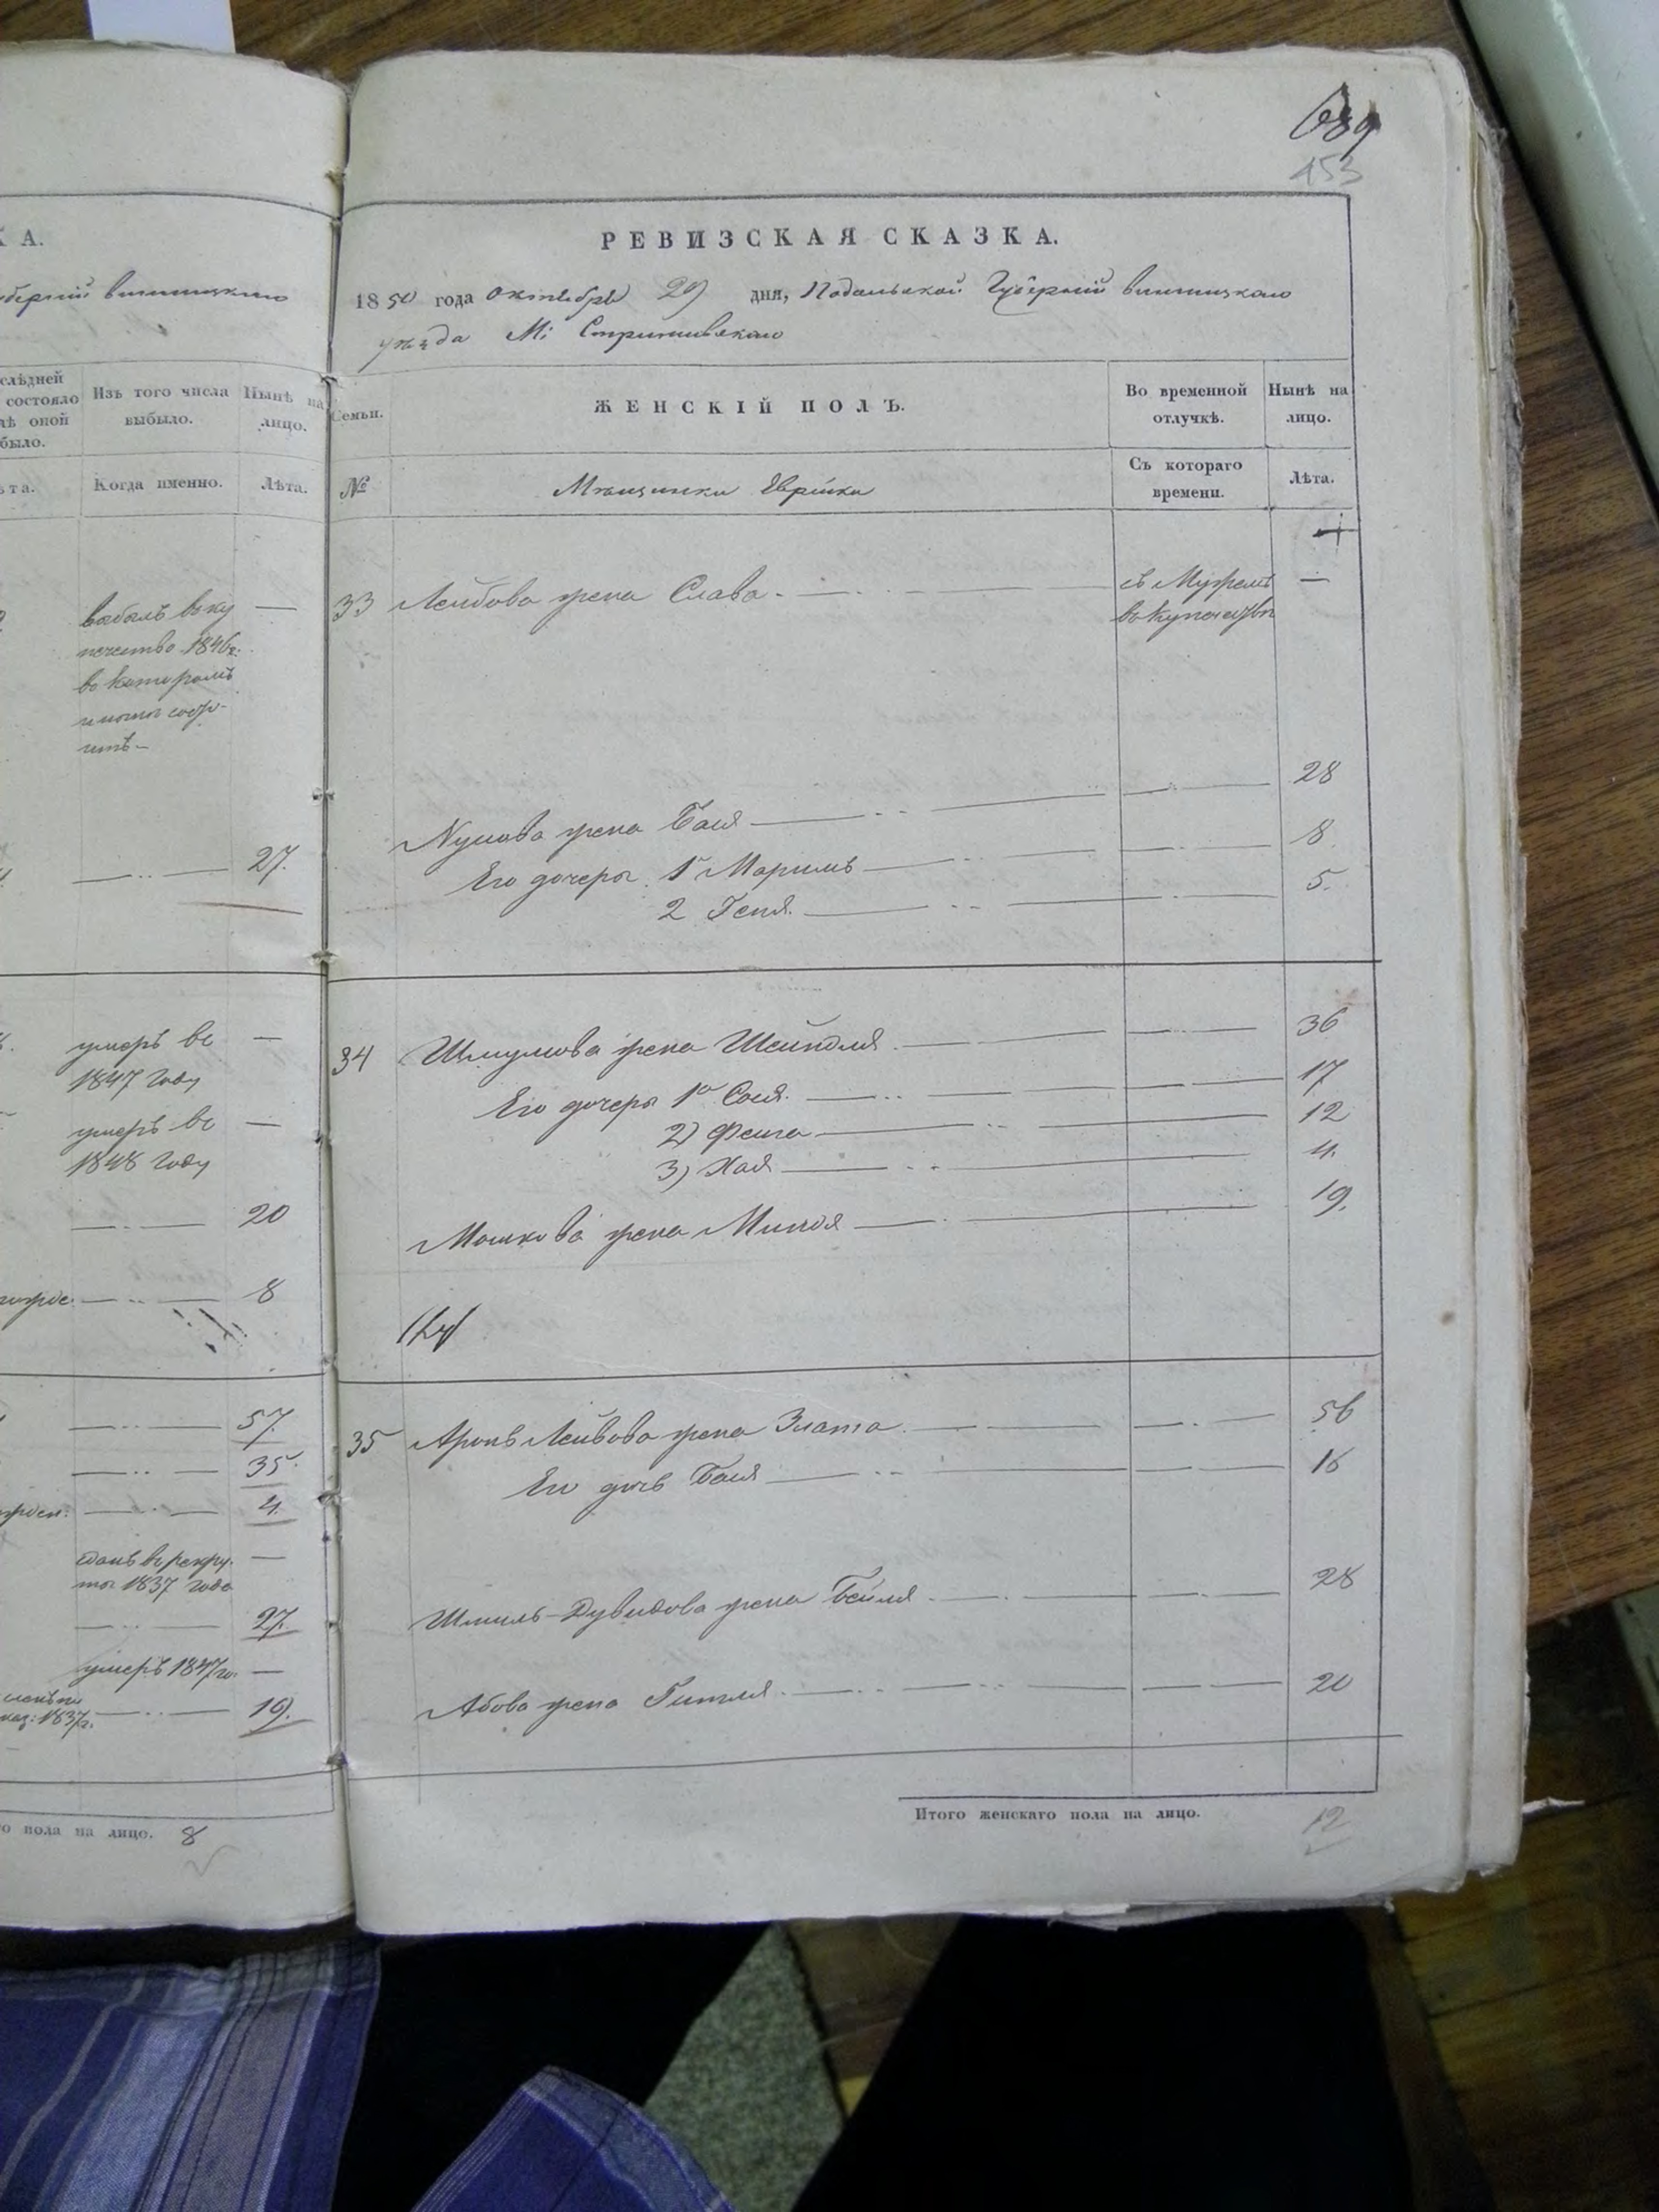 К А.
уберніи винницкаго
слѣдней
состояло
лѣ оной
было.
Изъ того числа
выбыло.
Нынѣ на
лицо.
ѣта.
Когда именно.
Лѣта.
выбылъ въ ку
печество 1846г.
въ которомъ
и ныне состо-
итъ —
27.
умеръ въ
1847 году
—
умеръ въ
1848 году
—
20
8
57.
35.
4.
сданъ в рекру-
ты 1837 года
—
27.
умеръ 1847 го.
—
каз: 1837г.
19.
го пола на лицо. 8
689
453
РЕВИЗСКАЯ СКАЗКА.
1850 года октября 29 дня, Подольской Губерніи винницкаго
уѣзда М:
Семьи.
ЖЕНСКІЙ ПОЛЪ.
Во временной
отлучкѣ.
Нынѣ на
лицо.
№
Мѣщанки Еврейки
Съ котораго
времени.
Лѣта.
33 Лейбова жена Слава — съ Мужемъ —
въ купечествѣ
Нухимова жена Бася — 28
Его дочери 1я Маримъ — 8.
2 Геня — 5.
34 Шмулева жена Шейндля — 36
Его дочери 1я Сося — 17
2) Фейга — 12
3) Хая — 4.
Мошкова жена Миндя — 19.
35 Аронъ Лейбова жена Злата — 56
Его дочь Бася — 16
Шмиль-Дувидова жена Бейля — 28
Абова жена Гитля — 20
Итого женскаго пола на лицо. 12